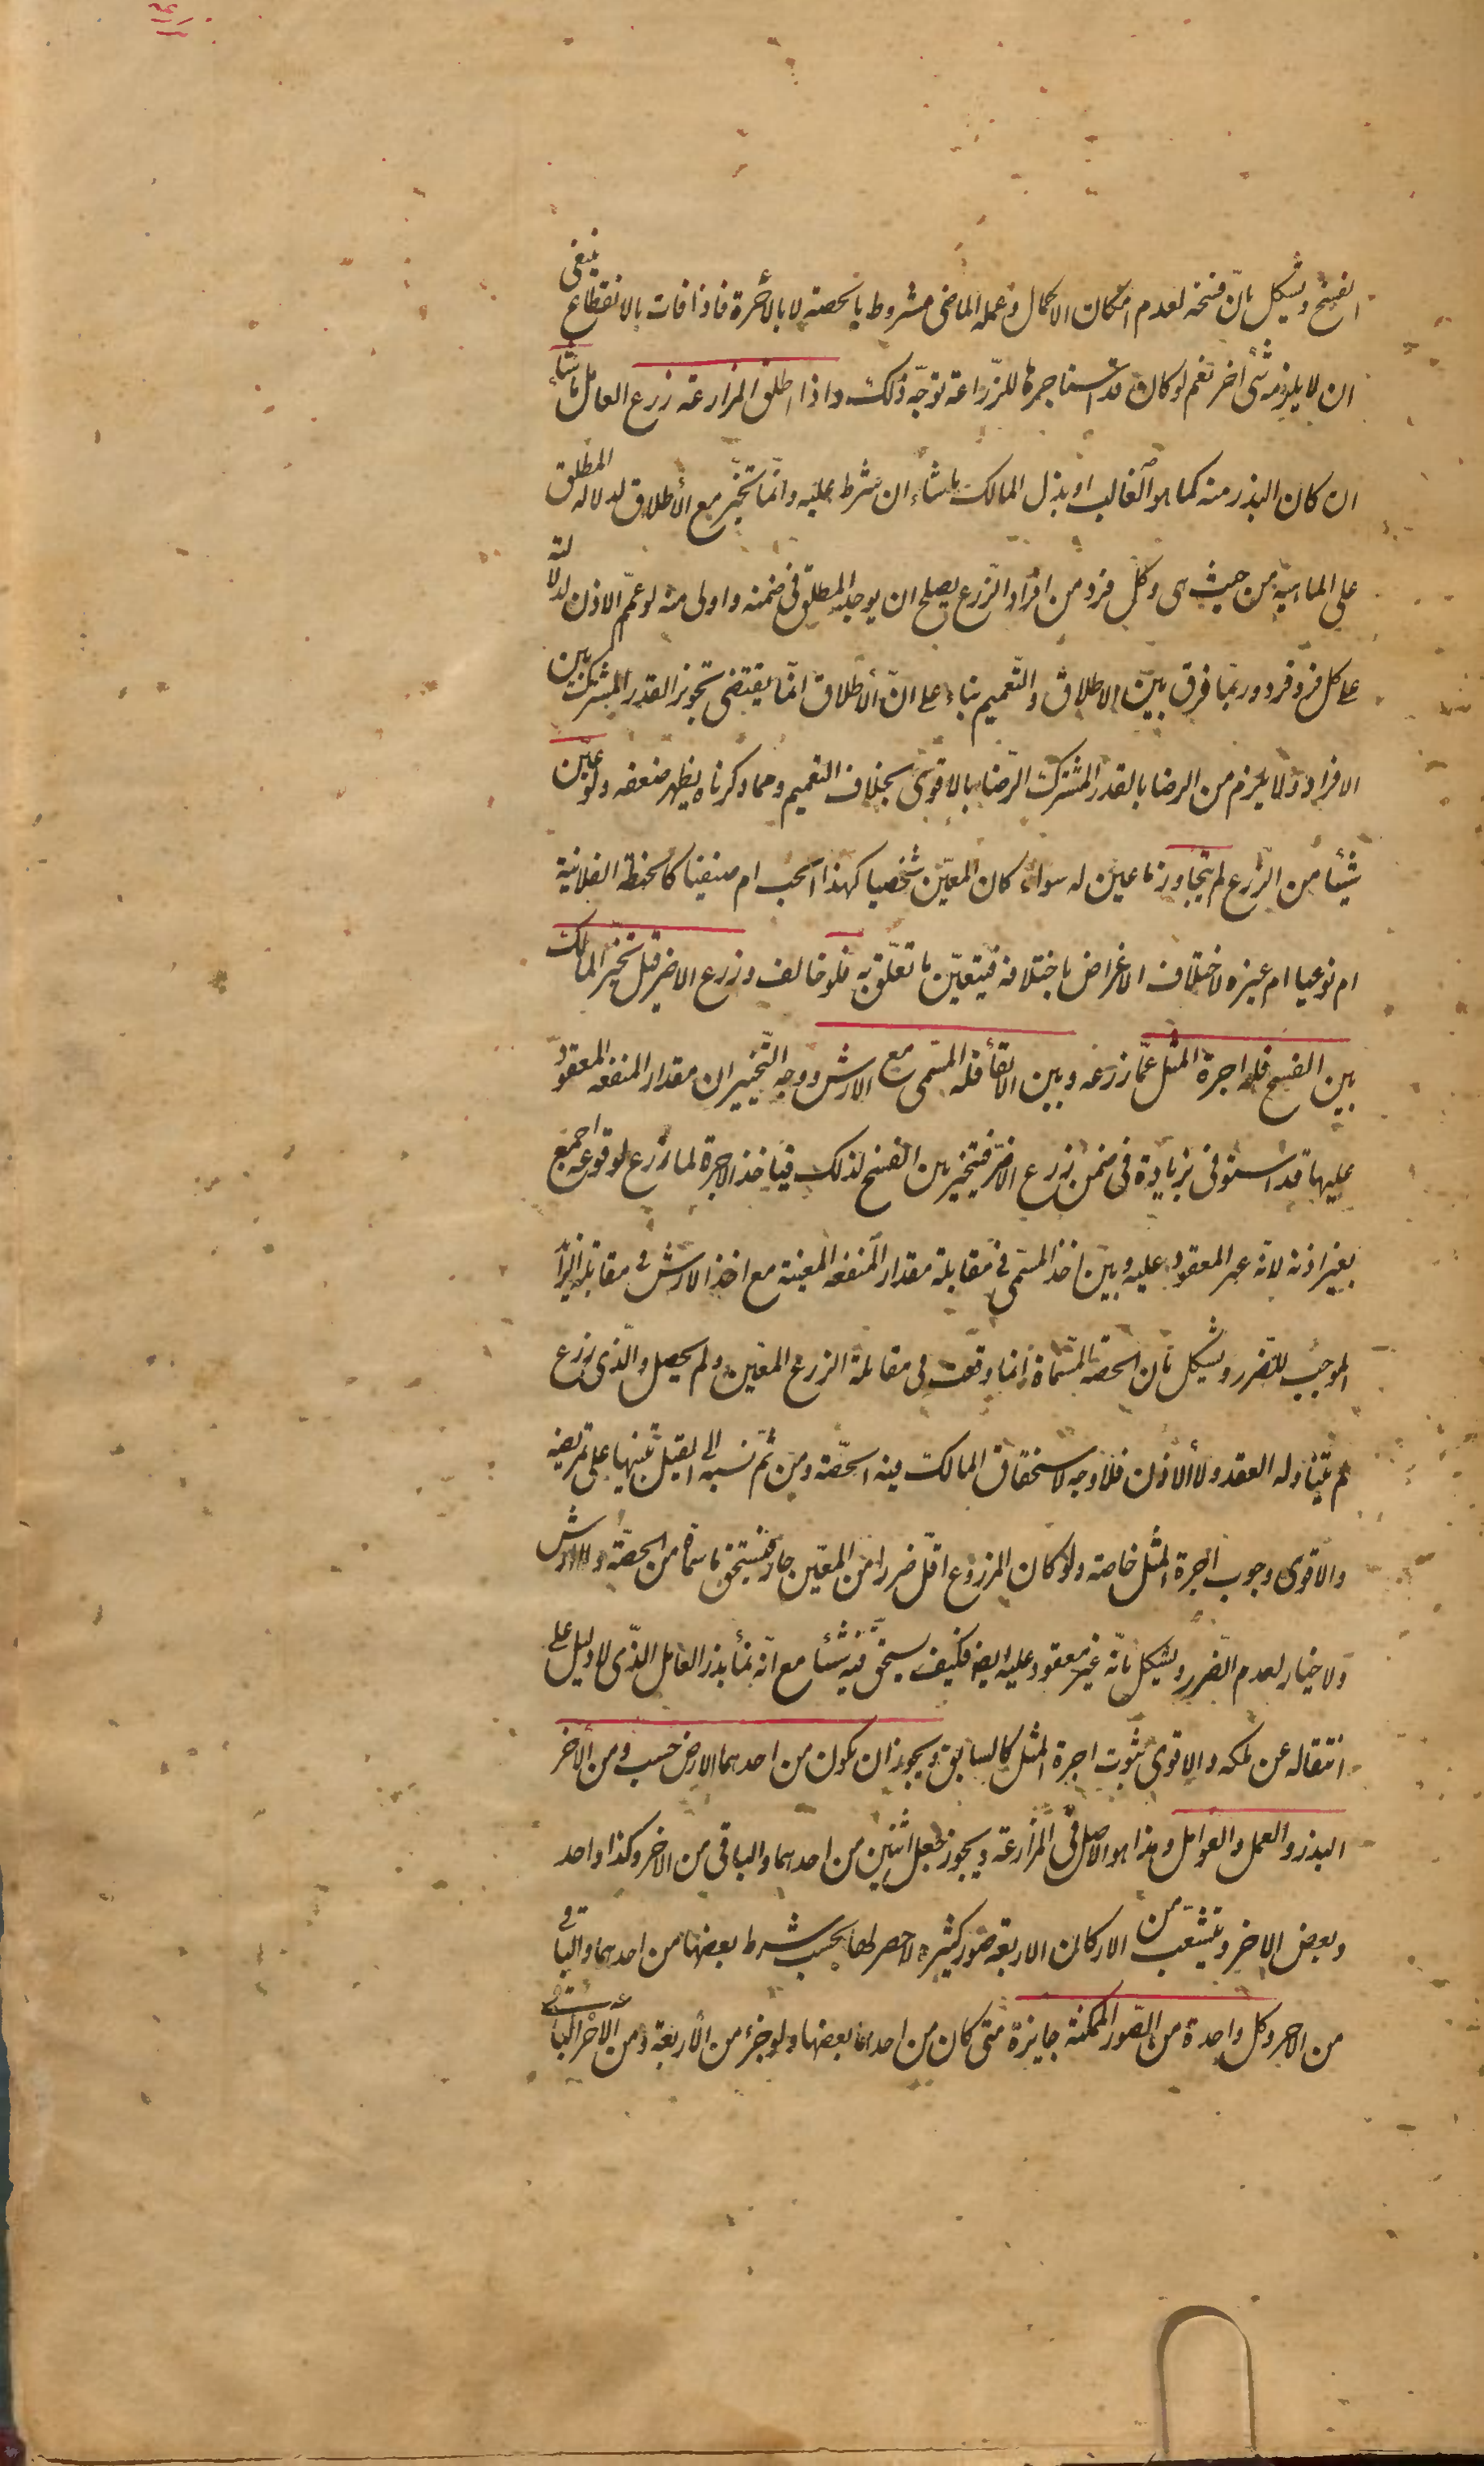 الفسخ ويشكل بان فسخه لعدم امكان الاكمال وعمله الماضى مشروط بالحصة لا بالأجرة فاذا فات بالانقطاع ينبغى
ان لا يلزمه شئ اخر نعم لو كان قد استاجره للزراعة توجّه ذلك واذا اطلق المزارعة زرع العامل ماشاء
ان كان البذر منه كما هو الغالب او بذل المالك ماشاء ان شرط عليه وانّما تخيّر مع الأطلاق لدلالة المطلق
على الماهيّة من حيث هى وكلّ فرد من افراد الزّرع يصلح ان يوجد المطلق فى ضمنه واولى منه لو عمّم الاذن لدلالته
على كل فرد فرد وربّما فرق بين الاطلاق والتّعميم بناء على انّ الأطلاق انّما يقتضى تجويز القدر المشترك بين
الافراد ولا يلزم من الرضا بالقدر المشترك الرّضا بالاقوى بخلاف التعميم ومما ذكرناه يظهر ضعفه ولو عيّن
شيئا من الزّرع لم يتجاوز ما عين له سواء كان المعيّن شخصيا كهذا الحب ام صنفيا كالحنطة الفلانية
ام نوعيا ام غيره لاختلاف الاغراض باختلافه فيتعيّن ما تعلّق به فلو خالف وزرع الاضر قيل تخيّر المالك
بين الفسخ فله اجرة المثل عمّا زرعه وبين الابقاء فله المسمى مع الارش ووجه التّخيير ان مقدار المنفعه المعقود
عليها قد استوفى بزيادة فى ضمن زرع الاضرّ فيتخير بين الفسخ لذلك فياخذ الاجرة لما زرع لوقوعه اجمع
بغير اذنه لانّه غير المعقود عليه وبين اخذ المسمى فى مقابلة مقدار المنفعه المعينة مع اخذ الارش فى مقابلة الزّائد
الموجب للضّرر ويشكل بان الحصة المسّماة انما وقعت فى مقابلة الزرع المعّين ولم يحصل والّذى زرع
لم يتناوله العقد ولا الاذن فلا وجه لاستحقاق المالك فيه الحصّة ومن ثمّ نسبه الى القيل تنبيها على تمريضه
والاقوى وجوب اجرة المثل خاصة ولو كان المزروع اقلّ ضررا من المعّين جاز فيستحق ما سماه من الحصة ولا ارش
ولا خيار لعدم الضّرر ويشكل بانّه غير معقود عليه ايضا فكيف يستحق فيه شيئا مع انّه نماء بذر العامل الذّى لا دليل على
انتقاله عن ملكه والاقوى ثبوت اجرة المثل كالسابق ويجوز ان يكون من احدهما الارض حسب ومن الاخر
البذر والعمل والعوامل وهذا هو الاصل فى المزارعة ويجوز جعل اثنين من احدهما والباقى من الاخر وكذا واحد
وبعض الاخر ويتشعّب من الاركان الاربعة صور كثيرة لا حصر لها بحسب شرط بعضها من احدهما والباقى
من الاخر وكل واحدة من الصّور الممكنة جايزة متى كان من احدهما بعضها ولو جزء من الأربعة ومن الاخر الباقى